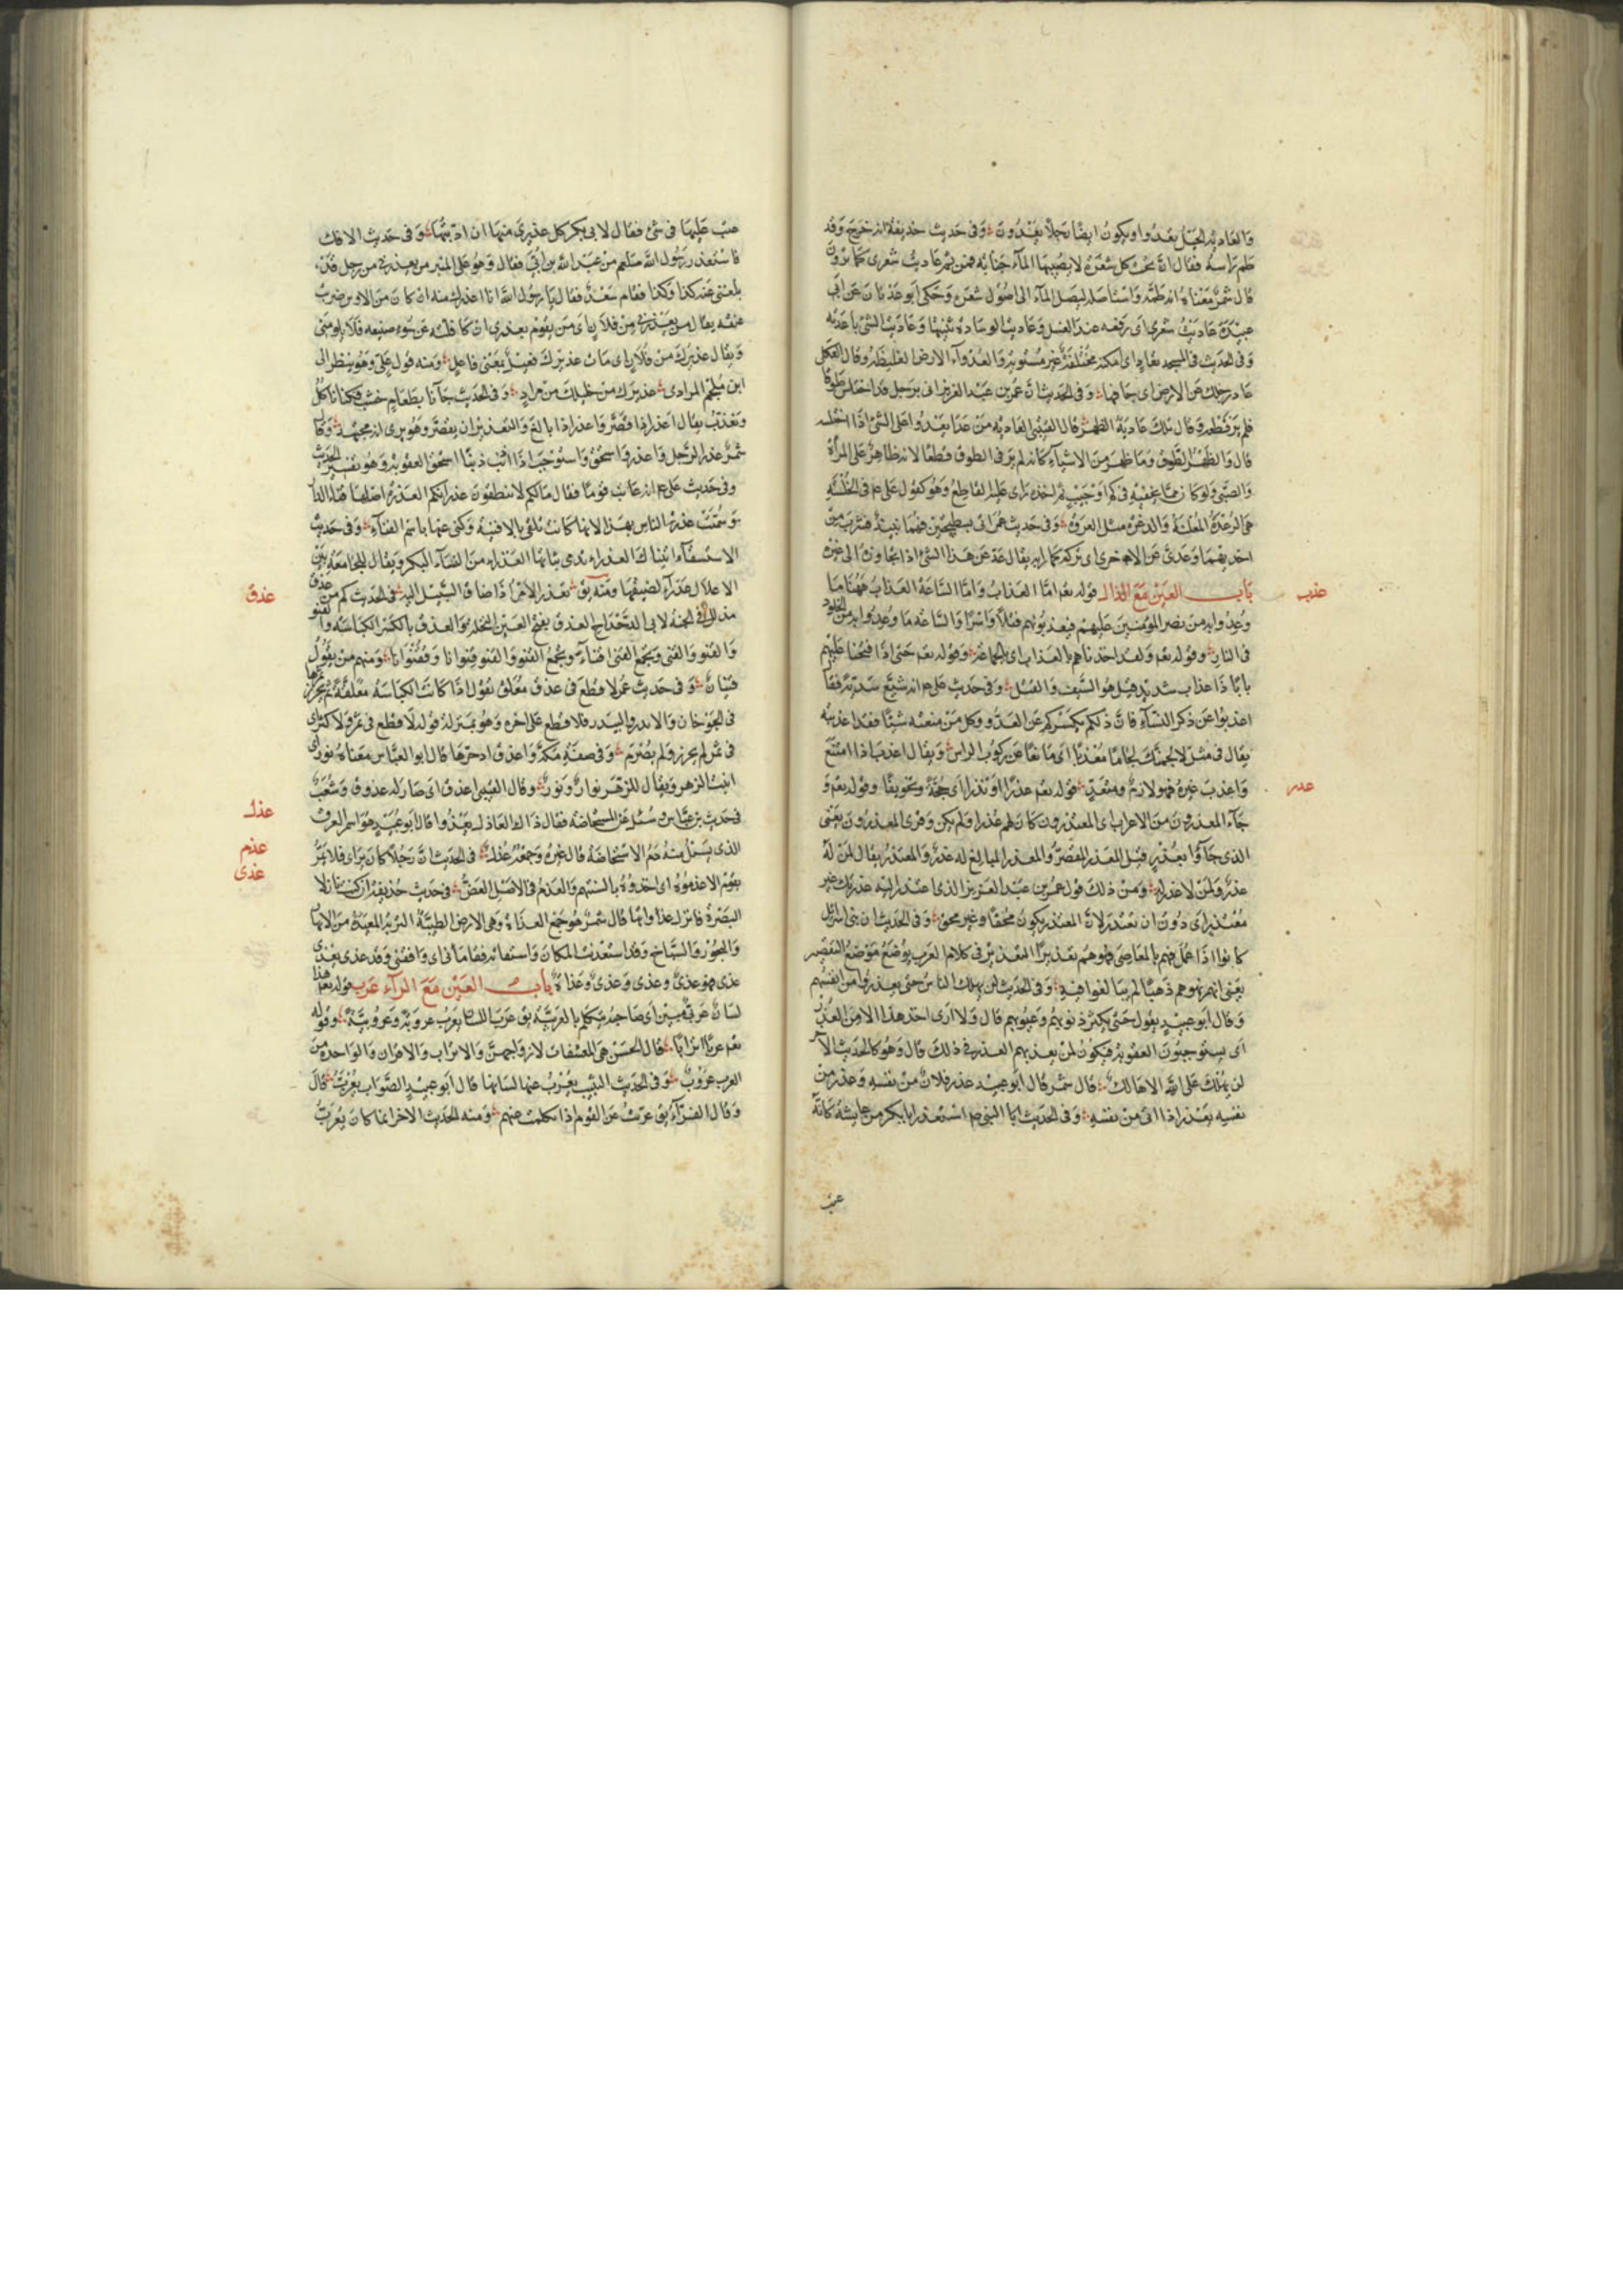 والعادية الخيل تعدوا ويكون ايضا رجلا يعدون وفى حديث حذيفة انه خرج وقد
طم راسه فقال ان تحت كل شعرة لا يصيبها الماء جنابة فمن ثم عاديت شعرى كما ترون
قال شمر معناه انه طمه واستاصله ليصل الماء الى اصول شعره وحكى ابو عدنان عن ابى
عبيدة عاديت شعرى اى رفعته عند الغسل وعاديت الوسادة ثنيتها وعاديت الشئ باعدته
وفى الحديث فى المسجد تعاد اى امكنة مختلفة غير مستوية والعدواء الارض الغليظة وقال العكلى
عاد رجلك عن الارض اى جافها وفى الحديث ان عمر بن عبد العزيز اتى برجل قد اختلس طوقا
فلم ير قطعه وقال تلك عادية الظهر قال القتيبى العادية من عدا يعدوا على الشئ اذا اختلسه
قال والظهر الطوق وما ظهر من الاشياء كانه لم ير فى الطوق قطعا لانه ظاهر على المراة
والصبى ولو كان مما يخفيه فى كم او جيب ثم اخذه راى عليه القطع وهو كقول على عم فى الخلسة
هى الدغرة المعلنة
احديهما وعدى عن الاخرى اى تركه كما رابه يقال عد عن هذا الشئ اذا تجاوزه الى غيره
عذب
باب العين مع الذال قوله تعه اما العذاب واما الساعة العذاب ههنا ما
وعدوا به من نصر المؤمنين عليهم فيعذبونهم قتلا واسرا والساعة ما وعدوا به من الخلود
فى النار وقوله تعه ولقد اخذناهم بالعذاب اى بالمجاعة وقوله تعه حتى اذا فتحنا عليهم
بابا ذا عذاب شديد قيل هو السيف والقتل وفى حديث على عم انه شيع سرية فقال
اعذبوا عن ذكر النساء فان ذلكم يكسركم عن العدو وكل من منعته شيئا فقد اعذبته
يقال فى مثل لالجمنك لجاما معذبا اى مانعا عن ركوب الراس ويقال اعذب اذا امتنع
عذر
واعذب غيره فهو لازم ومتعد قوله تعه عذرا او نذرا اى حجة وتخويفا وقوله تعه و
جاء المعذرون من الاعراب اى المعتذرون كان لهم عذر او لم يكن وقرئ المعذرون يعنى
الذى جاؤا بعذر قيل المعذر المقصر والمعذر المبالغ له عذر والمعتذر يقال لمن له
عذر ولمن لا عذر له ومن ذلك قول عمر بن عبد العزيز الذى اعتذر اليه عذرتك غير
معتذر اى دون ان تعتذر لان المعتذر يكون محقا وغير محق وفى الحديث ان بنى اسرائل
كانوا اذا عمل فيهم بالمعاصى نهوهم تعذيرا التعذير فى كلام العرب يوضع موضع التقصير
يعنى انهم نهوهم نهيا لم يبالغوا فيه وفى الحديث لن يهلك الناس حتى يعذروا من انفسهم
وقال ابو عبيد يقول حتى يكثر ذنوبهم وعيوبهم قال ولا ارى اخذ هذا الا من العذر
اى يستوجبون العقوبة فيكون لمن يعذبهم العذر فى ذلك قال وهو كالحديث الاخر
لن يهلك على الله الا هالك قال شمر قال ابو عبيد عذر فلان من نفسه وعذر من
نفسه يعذر اذا اتى من نفسه وفى الحديث ايا النبى عم استعذر ابا بكر من عايشة كانه
عتب
عتب عليها فى شئ فقال لابى بكر كن عذيرى منها ان ادبتها وفى حديث الافك
فاستعذر رسول الله صلعم من عبد الله بن ابى فقال وهو على المنبر من يعذرنى من رجل قد
بلغنى عنه كذا وكذا فقام سعد فقال يا رسول الله انا اعذرك منه ان كان من الاوس ضربت
عنقه يقال من يعذرنى من فلان اى من يقوم بعذرى ان كافاته عن سوء صنيعه فلا يلومنى
ويقال عذيرك من فلان اى هات عذيرك فعيل بمعنى فاعل ومنه قول على وهو ينظر الى
ابن ملجم المرادى عذيرك من خليلك من مراد وفى الحديث جاءنا بطعام خشب فكنا ناكل
ونعذر يقال اعذر اذا قصر واعذر اذا بالغ والتعذير ان يقصر وهو يرى انه مجتهد وقال
شمر عذر الرجل واعذر استحق واستوجب اذا اذنب ذنبا استحق العقوبة وهو تفسير الحديث
وفى حديث على عم انه عاتب قوما فقال مالكم لا تنظفون عذراتكم العذرة اصلها فناء الدار
وسميت عذرة الناس بهذا لانها كانت تلقى بالافنية وكنى عنها باسم الفناء وفى حديث
الاستسقاء اتيناك والعذراء تدمى لبانها العذراء من النساء البكر ويقال للجامعة بين
عذق
الاغلال عذراء لضيقها ومنه يق تعذر الامر اذا ضاق السبيل اليه فى الحديث كم من عذق
مذلل فى الجنة لابى الدحداح العذق بفتح العين النخلة والعذق بالكسر الكباسة والقنو
والقنو والقنى ويجمع القنى اقناء ويجمع القنو والقنو قنوانا وقنوانا ومنهم من يقول
قنيان وفى حديث عمر لا قطع فى عذق معلق يقول اذا كانت الكباسة معلقة لم يحرزها
فى الجوخان والاندر والبيدر فلا قطع على اخذه وهو بمنزلة قوله لا قطع فى ثمر ولا كثر اى
فى ثمر لم يحرز ولم يصرم وفى صفة مكة واعذق اذخرها قال ابو العباس معناه نور اى
انبت الزهر ويقال للزهر نوار ونور وقال القتيبى اعذق اى صار له عذوق وشعب
عذل
فى حديث بن عباس وسئل عن المستحاضة فقال ذاك العاذل يغذوا قال ابو عبيد هو اسم العرق
عذم
الذى يسيل منه دم الاستحاضة قال غيره وجمعه عذل فى الحديث ان رجلا كان يرائ فلا يمر
عذى
بقوم الا عذموه اى اخذوه بالسنتهم والعذم فى الاصل العض فى حديث حذيفة ان كنت نازلا
البصرة فانزل عذاواتها قال شمر هو جمع العذاة وهى الارض الطيبة التربة البعيدة من الانهار
والبحور والسباخ وقد استعذيت المكان واستقاته فقامانى اى وافقنى وقد عذى يعذى
عذى فهو عذى وعذى وعذى وعذاة باب العين مع الراء عرب قوله تعه هذا
لسان عربى مبين اى صاحبه يتكلم بالعربية يق عرب اللسان يعرب عروبة وعروبية وقوله
تعه عربا اترابا قال الحسن هى المتعشقات لازواجهن والاتراب والاقران والواحدة من
العرب عروب وفى الحديث الثيب يعرب عنها لسانها قال ابو عبيد الصواب يعرب قال
وقال الفراء يق عربت عن القوم اذا تكلمت عنهم ومنه الحديث الاخر انما كان يعرب